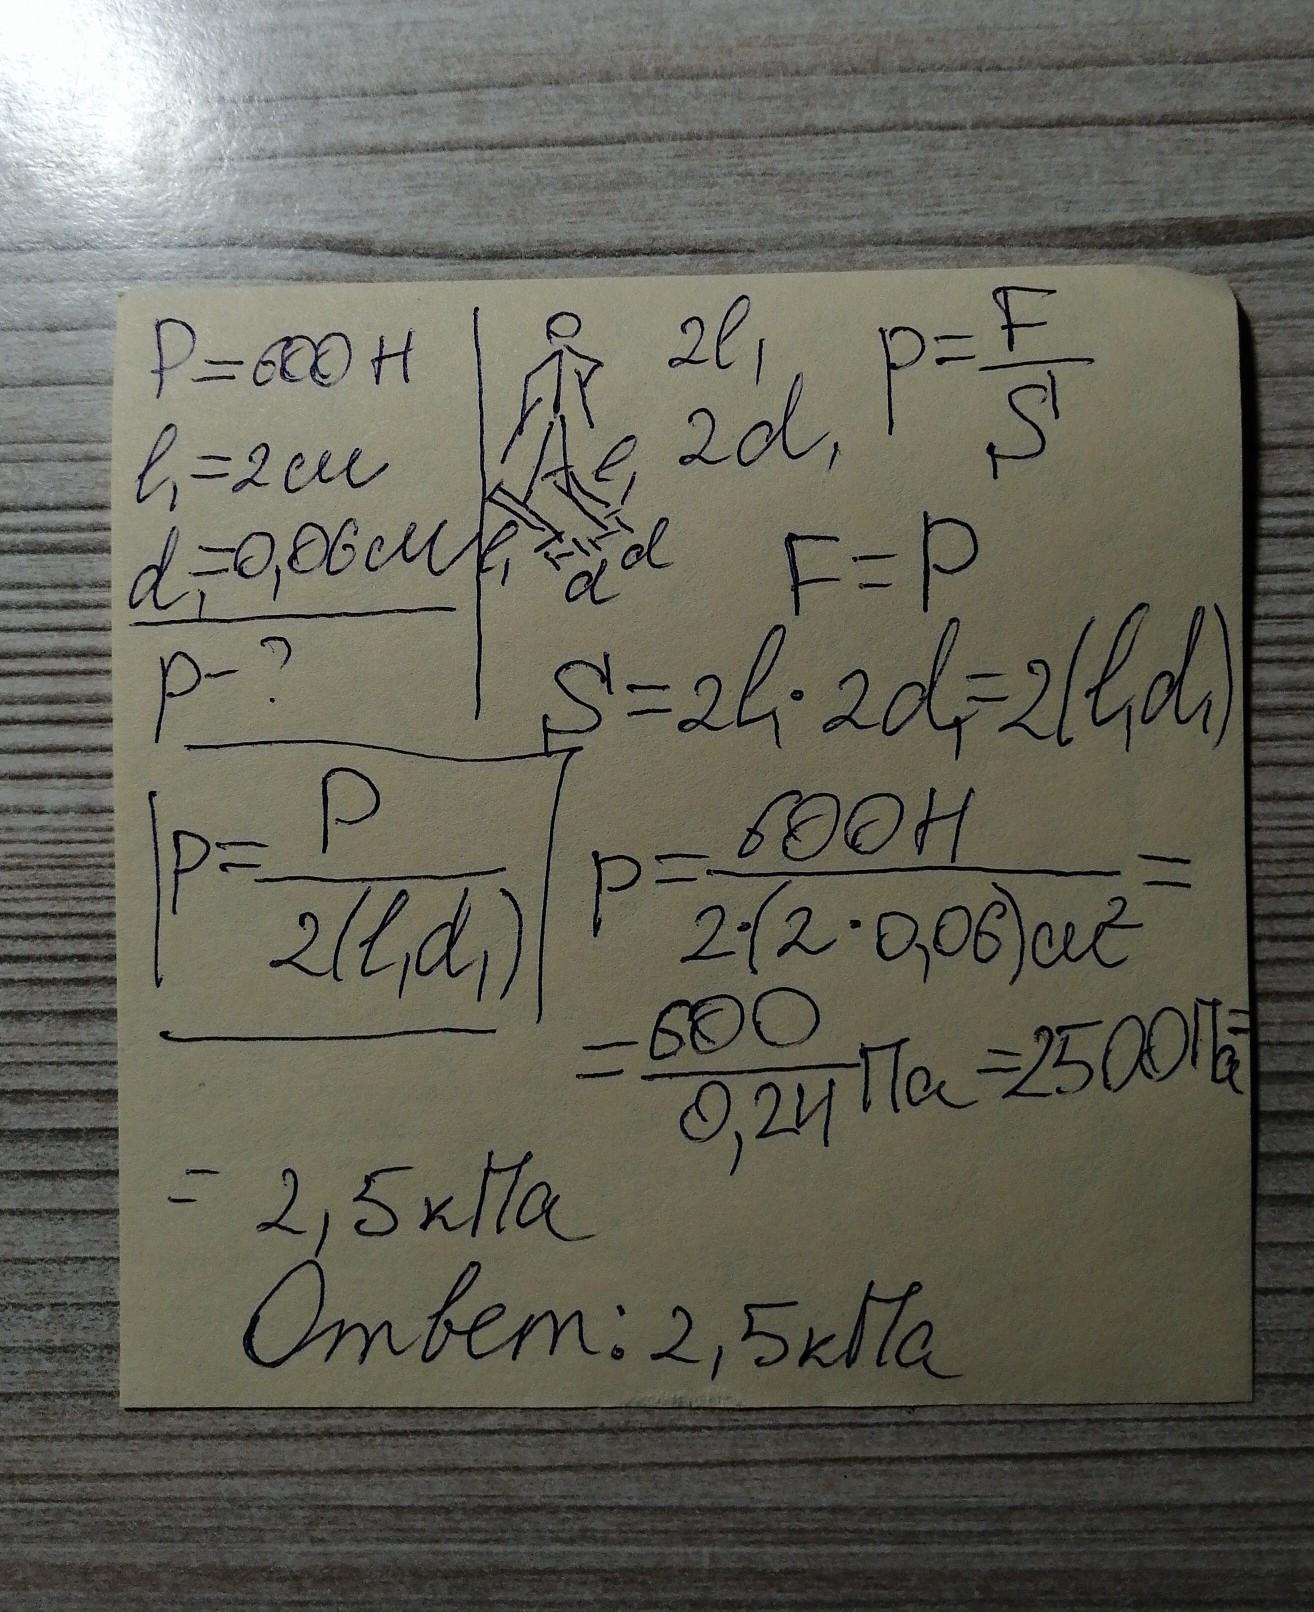 P=600Н
l₁=2см
d₁=0,06см
p-?
l₁
l₁
d
d
2l₁
2d₁
p=F/S
F=P
S=2l₁·2d₁=2(l₁d₁)
p=P/2(l₁d₁)
p=600Н/2·(2·0,06)см²=
=600/0,24Па=2500Па=
= 2,5кПа
Ответ: 2,5кПа